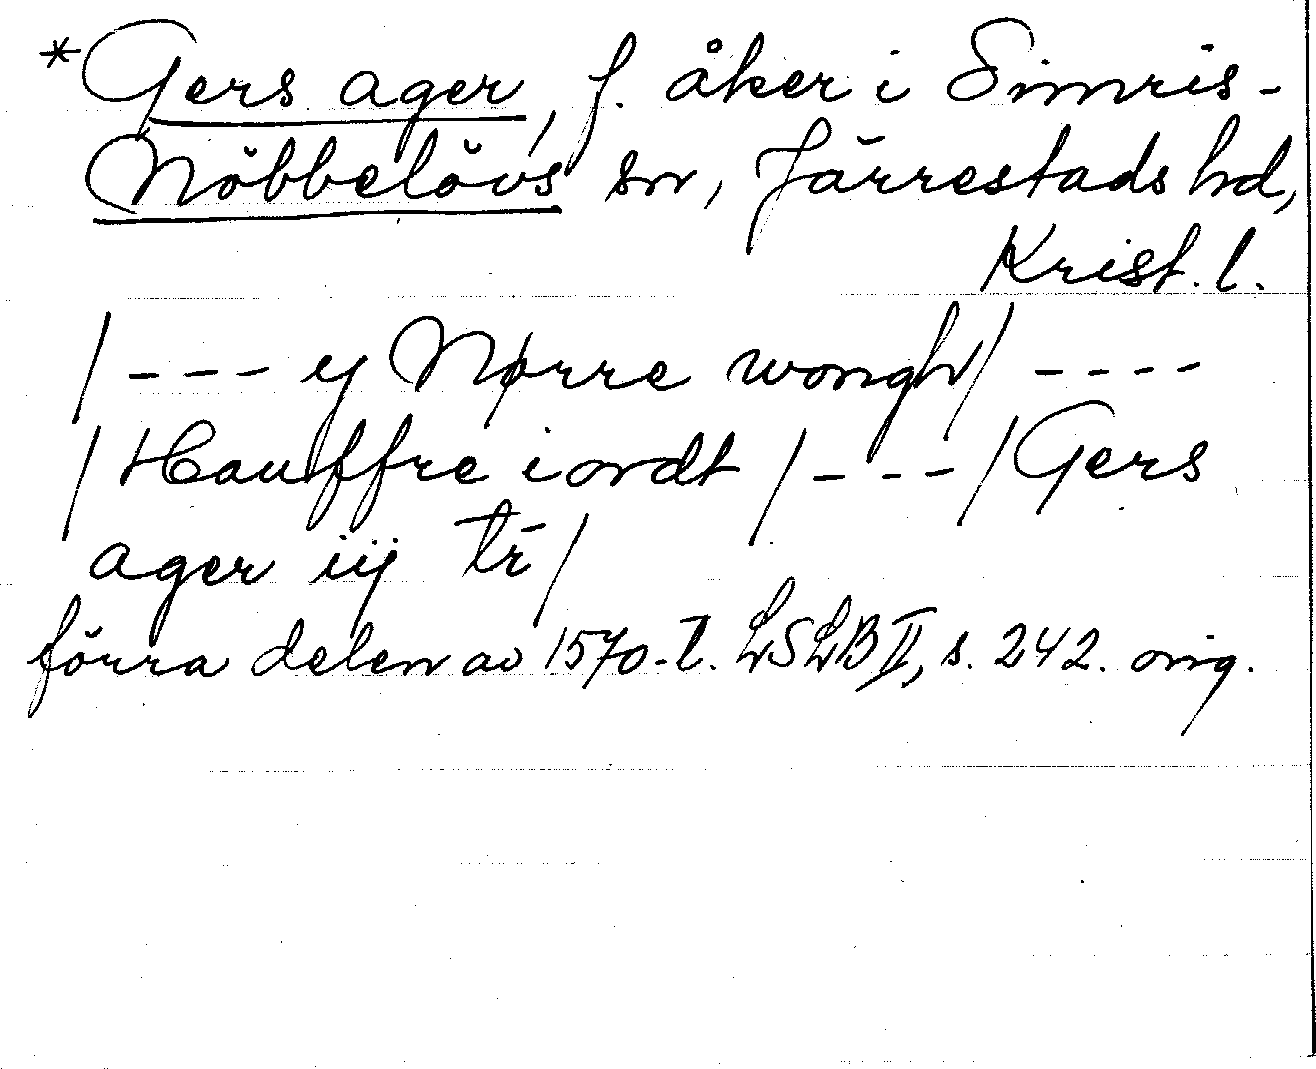 *Gers ager, f. åker i Simris-
Nöbbelövs sn, Järrestads hd,
Krist. l.
/--- ej Nørre wongh/ ----
/Hauffre iordt/---/Gers
ager iij tr/
förra delen av 1570-t. LSLB II, s. 242. orig.